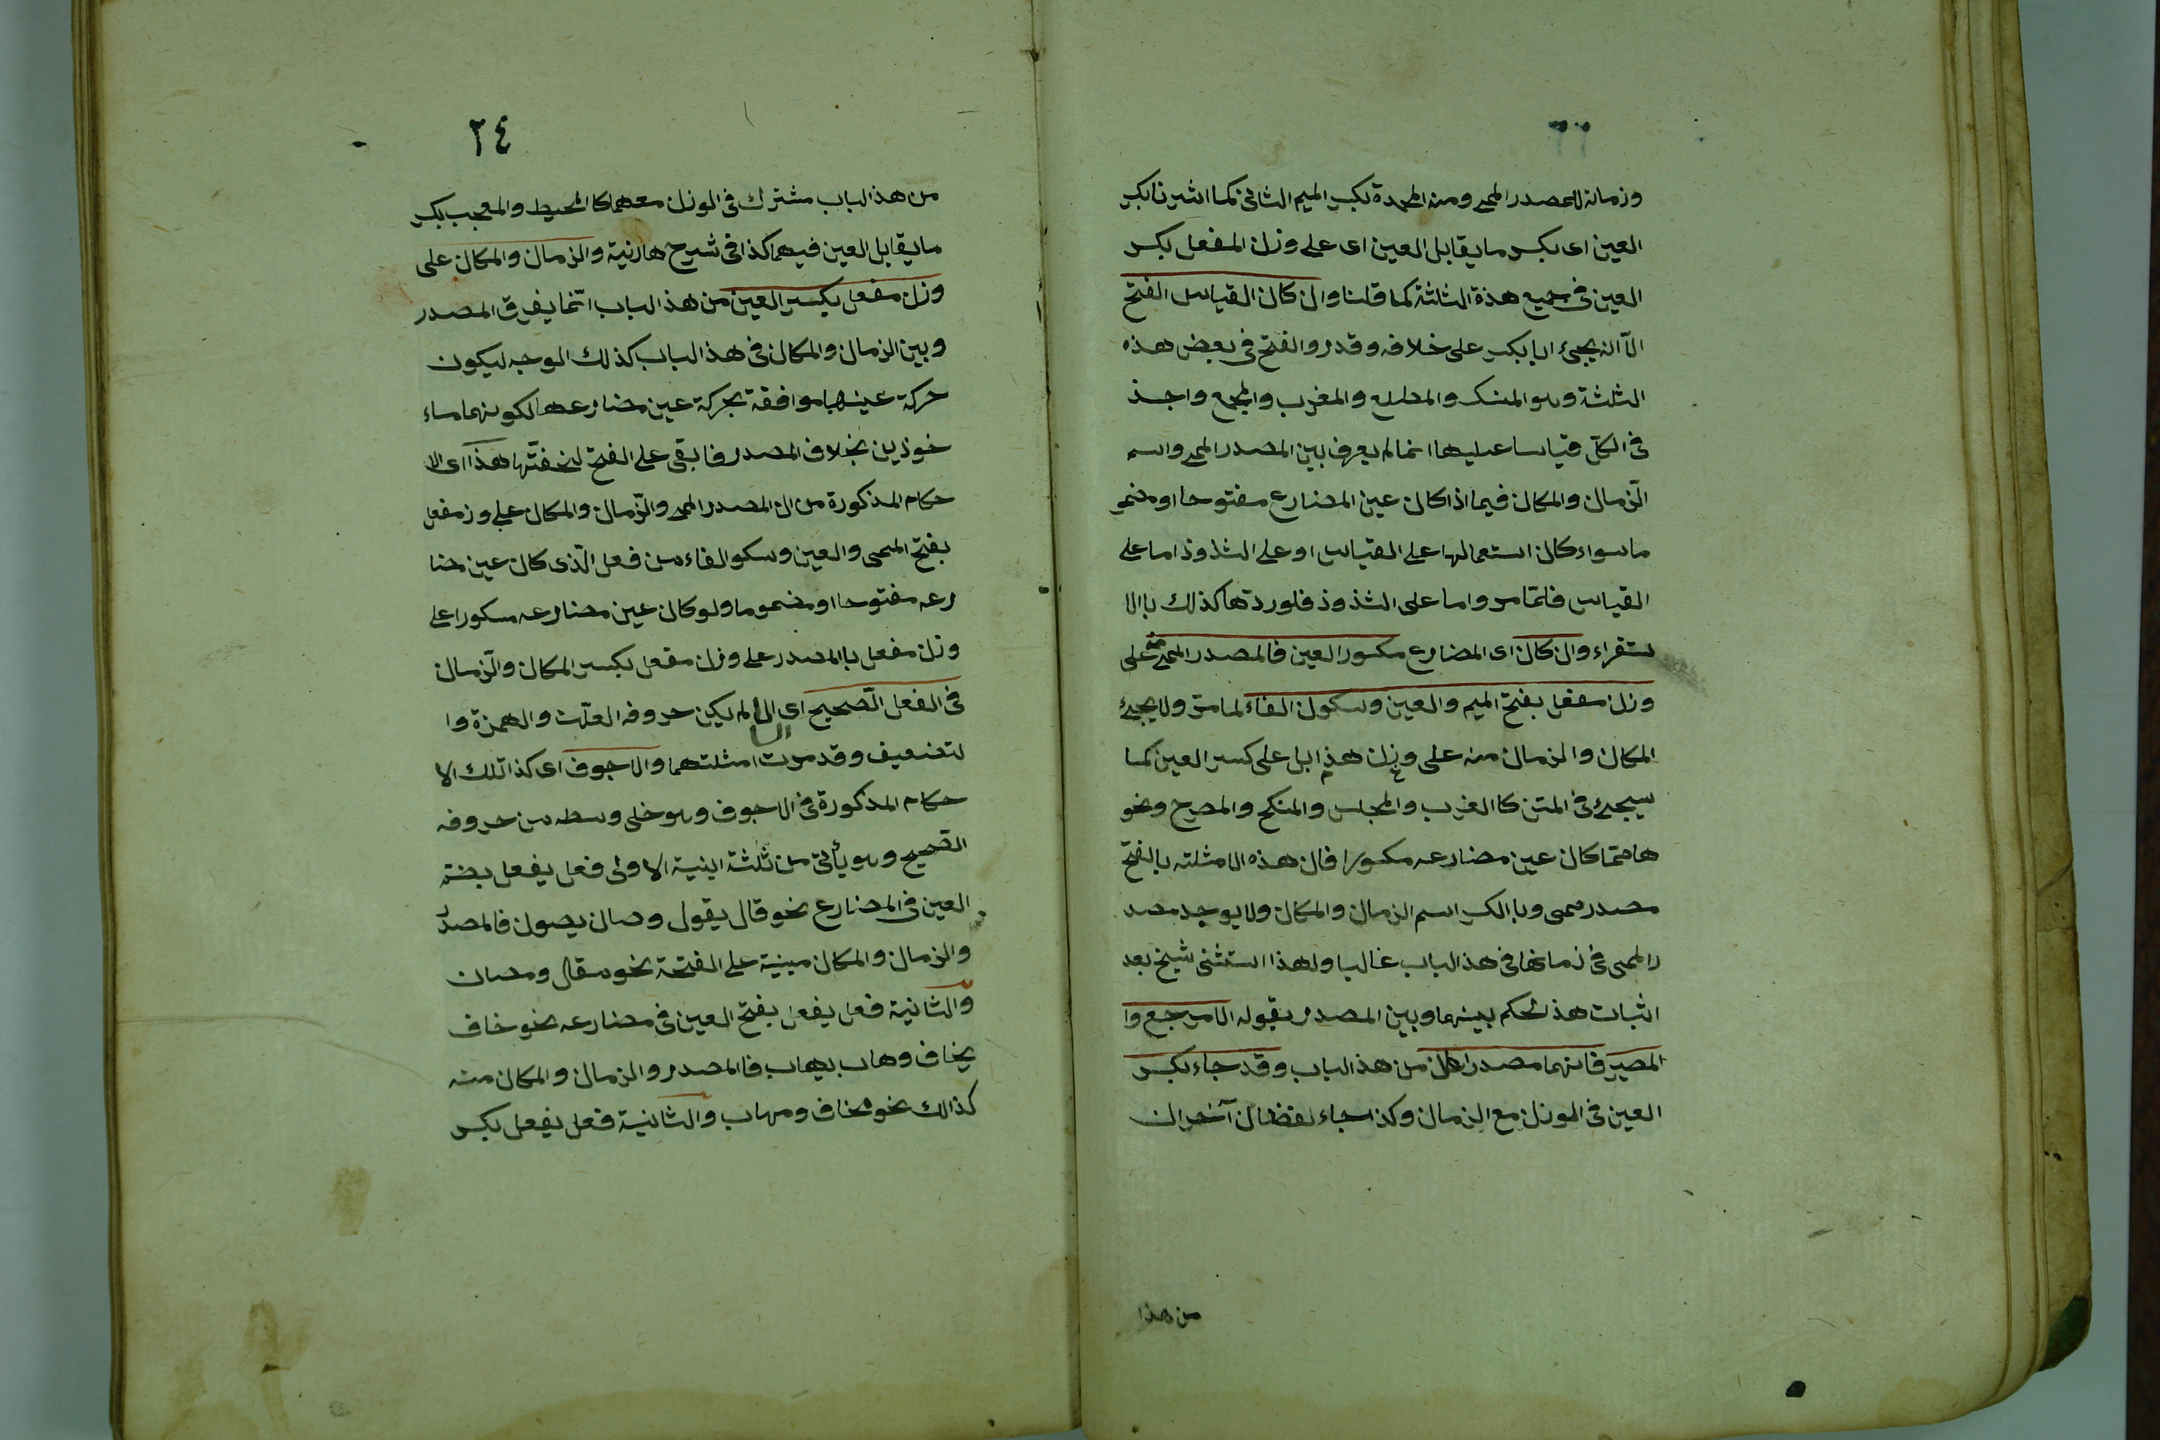 وزمانه للمصدر الميمى ومنه المحمدة بكسر الميم الثانى كما اشرنا بكسر
العين اى بكسر ما يقابل العين اى على وزن المفعل بكسر
العين فى جميع هذه الثلثة كما قلنا وان كان القياس الفتح
الا انه يجىء بالكسر على خلافه وقد روا الفتح فى بعض هذه
الثلثة وهو المنسك والمطلع والمغرب والمجمع واجذ
فى الكل قياسا عليها انما لم يعرف بين المصدر الميمى واسم
الزمان والمكان فيما اذا كان عين المضارع مفتوحا او مضمو
ما سواء كان استعمالها على القياس او على الشذوذ اما على
القياس فلما مر واما على الشذوذ فلوردتها كذلك بالا
ستقراء وان كان اى المضارع مكسور العين فالمصدر الميمى منه على
وزن مفعل بفتح الميم والعين وسكون الفاء لما مر ولا يجىء
المكان والزمان منه على وزن هذا بل على كسر العين كما
سيجىء فى المتن كا المغرب والمجلس والمنكح والمصرح ونحو
ها مما كان عين مضارعه مكسورا فان هذه الامثلته بالفتح
مصدر ميمى وبا الكسر اسم الزمان والمكان ولا يوجد مصد
ر الميمى فى زمانها فى هذ الباب غالبا ولهذا استثنى شيخ بعد
اثبات هذ الحكم بينهما وبين المصدر بقوله الا مرجع وا
لمصير فانهما مصدران من هذ الباب وقد جاء بكسر
العين فى الوزن مع الزمان وكذا جاء لفظان آخران
من هذا
٢٤
من هذ الباب مشترك فى الوزن معهما كا المحيط والمعجب بكسر
ما يقابل العين فيهما كذا فى شرح هارنية والزمان والمكان على
وزن مفعل بكسر العين من هذ الباب انما يفرق المصدر
وبين الزمان والمكان فى هذ الباب كذلك الوجه ليكون
حركة عينهما موافقة بحركة عين مضارعهما لكونهما ماء
خوذين بخلاف المصدر فابقى على الفتح لخفتها هذا اى الا
حكام المذكورة من ان المصدر الميمى والزمان والمكان على وز مفعل
بفتح الميمى والعين وسكو الفاء من فعل الذى كان عين مضا
رعه مفتوحا او مضموما ولو كان عين مضارعه مسكورا على
وزن مفعل با المصدر على وزن مفعل بكسر المكان والزمان
فى الفعل الصحيح اى لم يكن حروفه العلت والهمزة وا
لتضعيف وقد مرت امثلتهما والاجوف اى كذا تلك الا
حكام المذكورة فى الاجوف وهو خلى وسطه من حروفه
الصحيح وهو يأتى من ثلثة ابنية الاولى فعل يفعل بضم
العين فى المضارع نحو قال يقول وصان يصون فالمصدر
والزمان والمكان مبنية على الفتحة نحو مقال ومصان
والثانية فعل يفعل بفتح العين فى مضارعه نحو خاف
يخاف وهاب يهاب فالمصدر والزمان والمكان منه
كذالك نحو مخاف ومهاب والثانية فعل يفعل بكسر